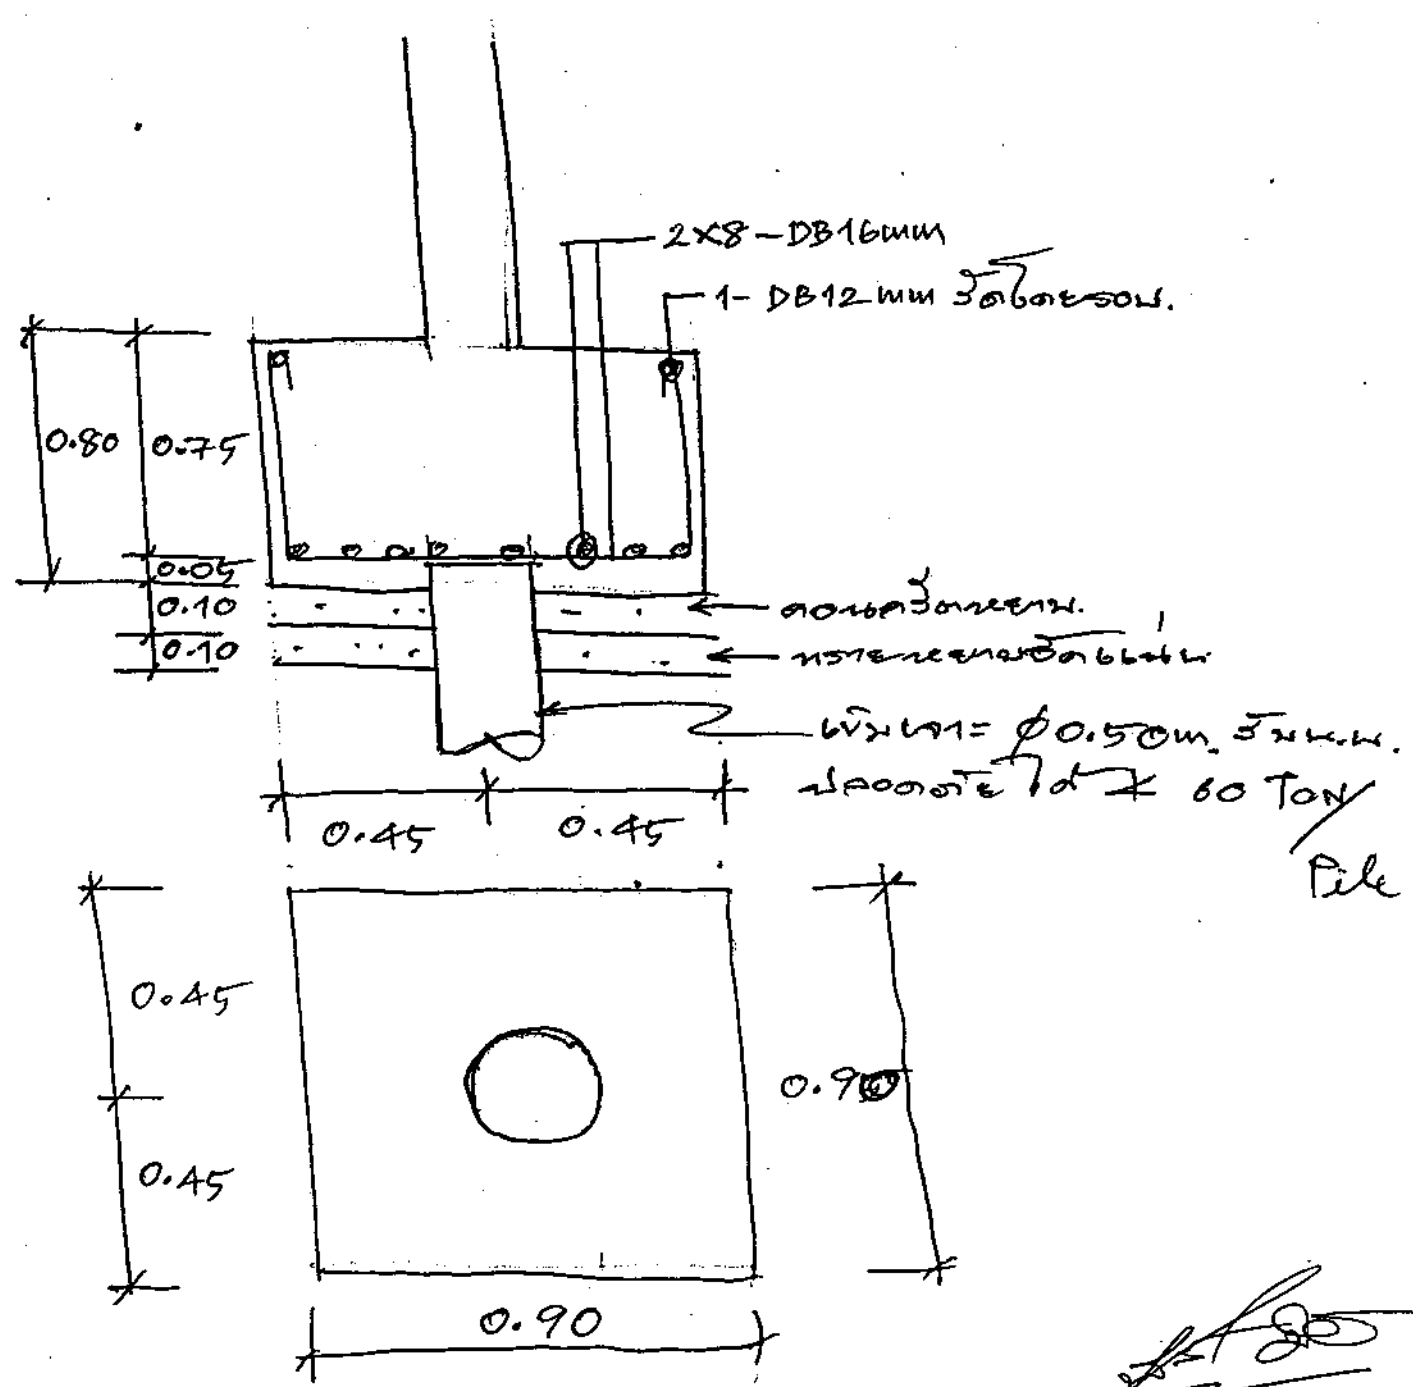 2X8-DB16mm
1- DB12mm รัดโดยรอบ.
0.80 0.75
0.05
0.10
คอนกรีตหยาบ.
0.10
ทรายหยาบอัดแน่น
เข็มเจาะ Ø0.50m. รับน.น.
ปลอดภัยได้ ≮ 60 TON/
Pile
0.45 0.45
0.45
0.90
0.45
0.90